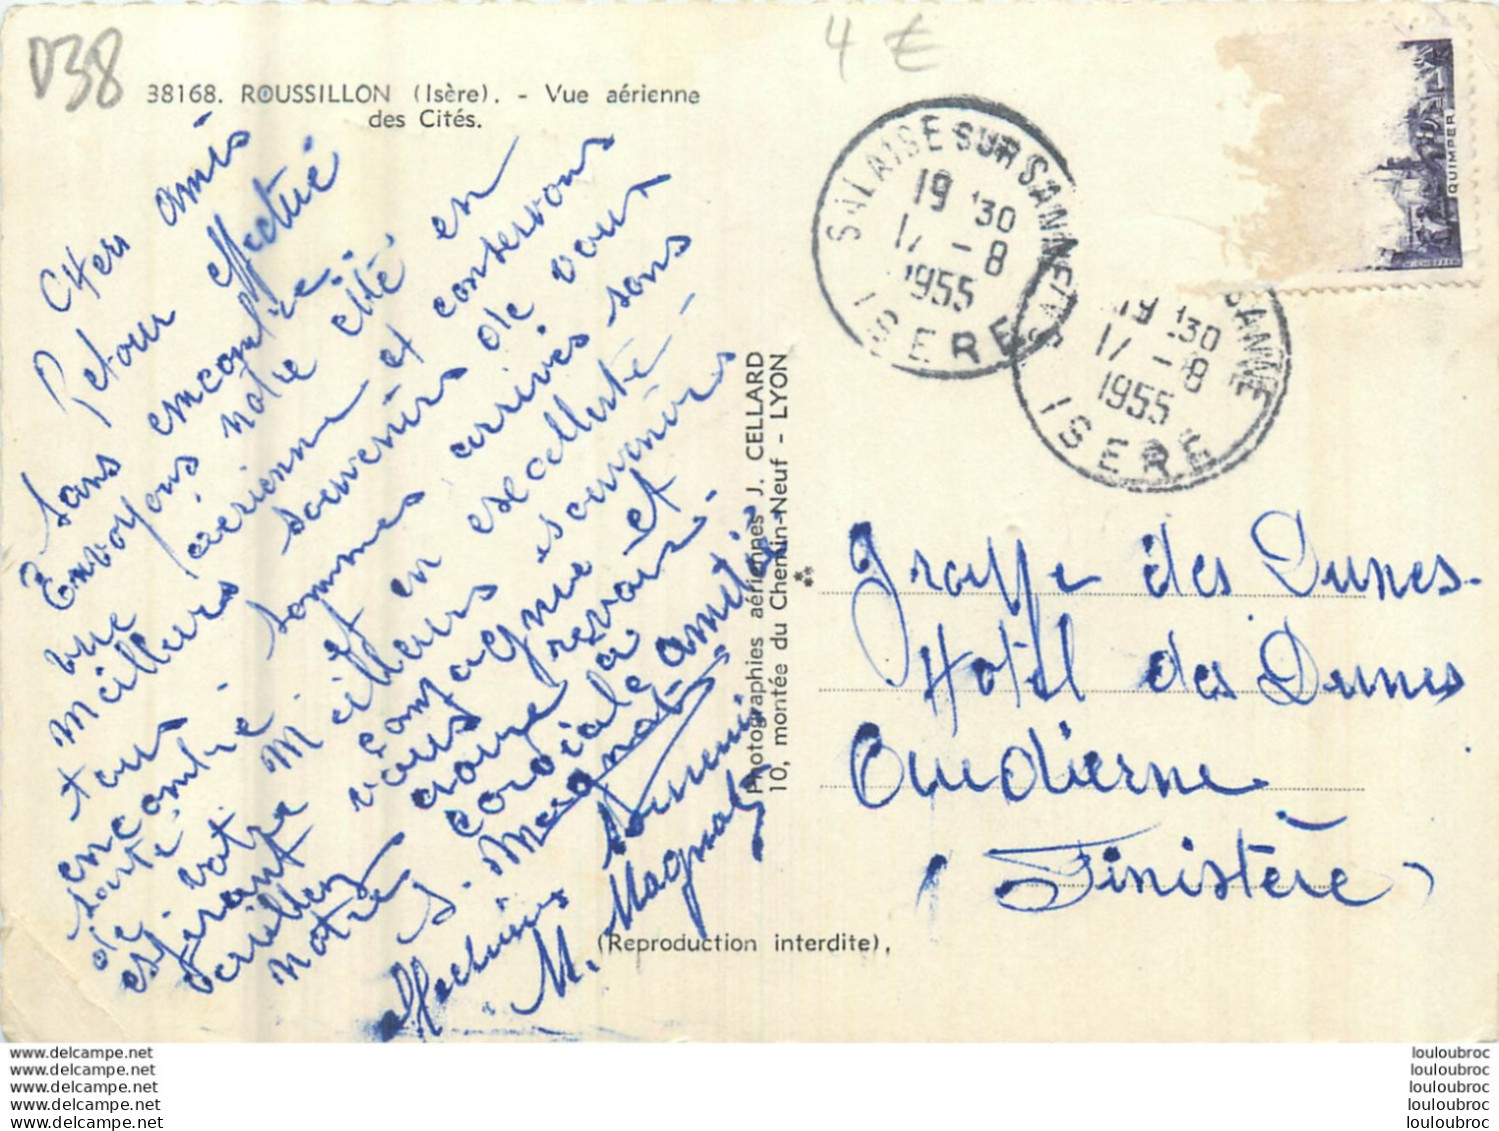 D38
4 €
38168. ROUSSILLON (Isère). - Vue aérienne
des Cités.
Chers amis
Retour effectué
sans encombre.
Envoyons notre cité en
vue aérienne et conservons
meilleurs souvenirs de vous
tous sommes arrivés sans
encombre et en excellente
santé. Meilleurs souvenirs
de votre compagnie et
espérant vous revoir.
veuillez croire à
notre cordiale amitié
G. Magnat
Affectueux souvenir
M. Magnat
Photographies aériennes J. CELLARD
10, montée du Chemin-Neuf - LYON
(Reproduction interdite).
SALAISE SUR SANNE
19 30
17 - 8
1955
ISERE
SANNE
19 30
17 - 8
1955
ISERE
QUIMPER
Groupe des Dunes
Hotel des Dunes
Audierne
(Finistère)
www.delcampe.net
www.delcampe.net
www.delcampe.net
www.delcampe.net
www.delcampe.net
louloubroc
louloubroc
louloubroc
louloubroc
louloubroc